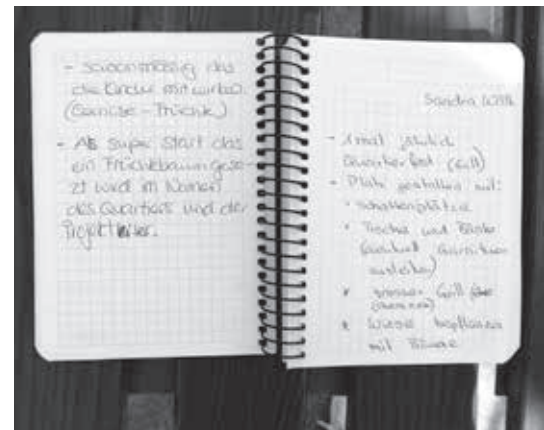 - saisonmässig das
die Kinder mitwirken
(Gemüse - Früchte)
- Als super Start das
ein Früchtebaum gese-
zt wird im Namen
des Quartiers und der
Projektleiter.
Sandra
- 1 mal jährlich
Quartierfest (Grill)
- Platz gestalten mit:
• Schattenplätze
• Tische und Bänke
• grosser Grill
• Wiese bepflanzen
mit Bäume